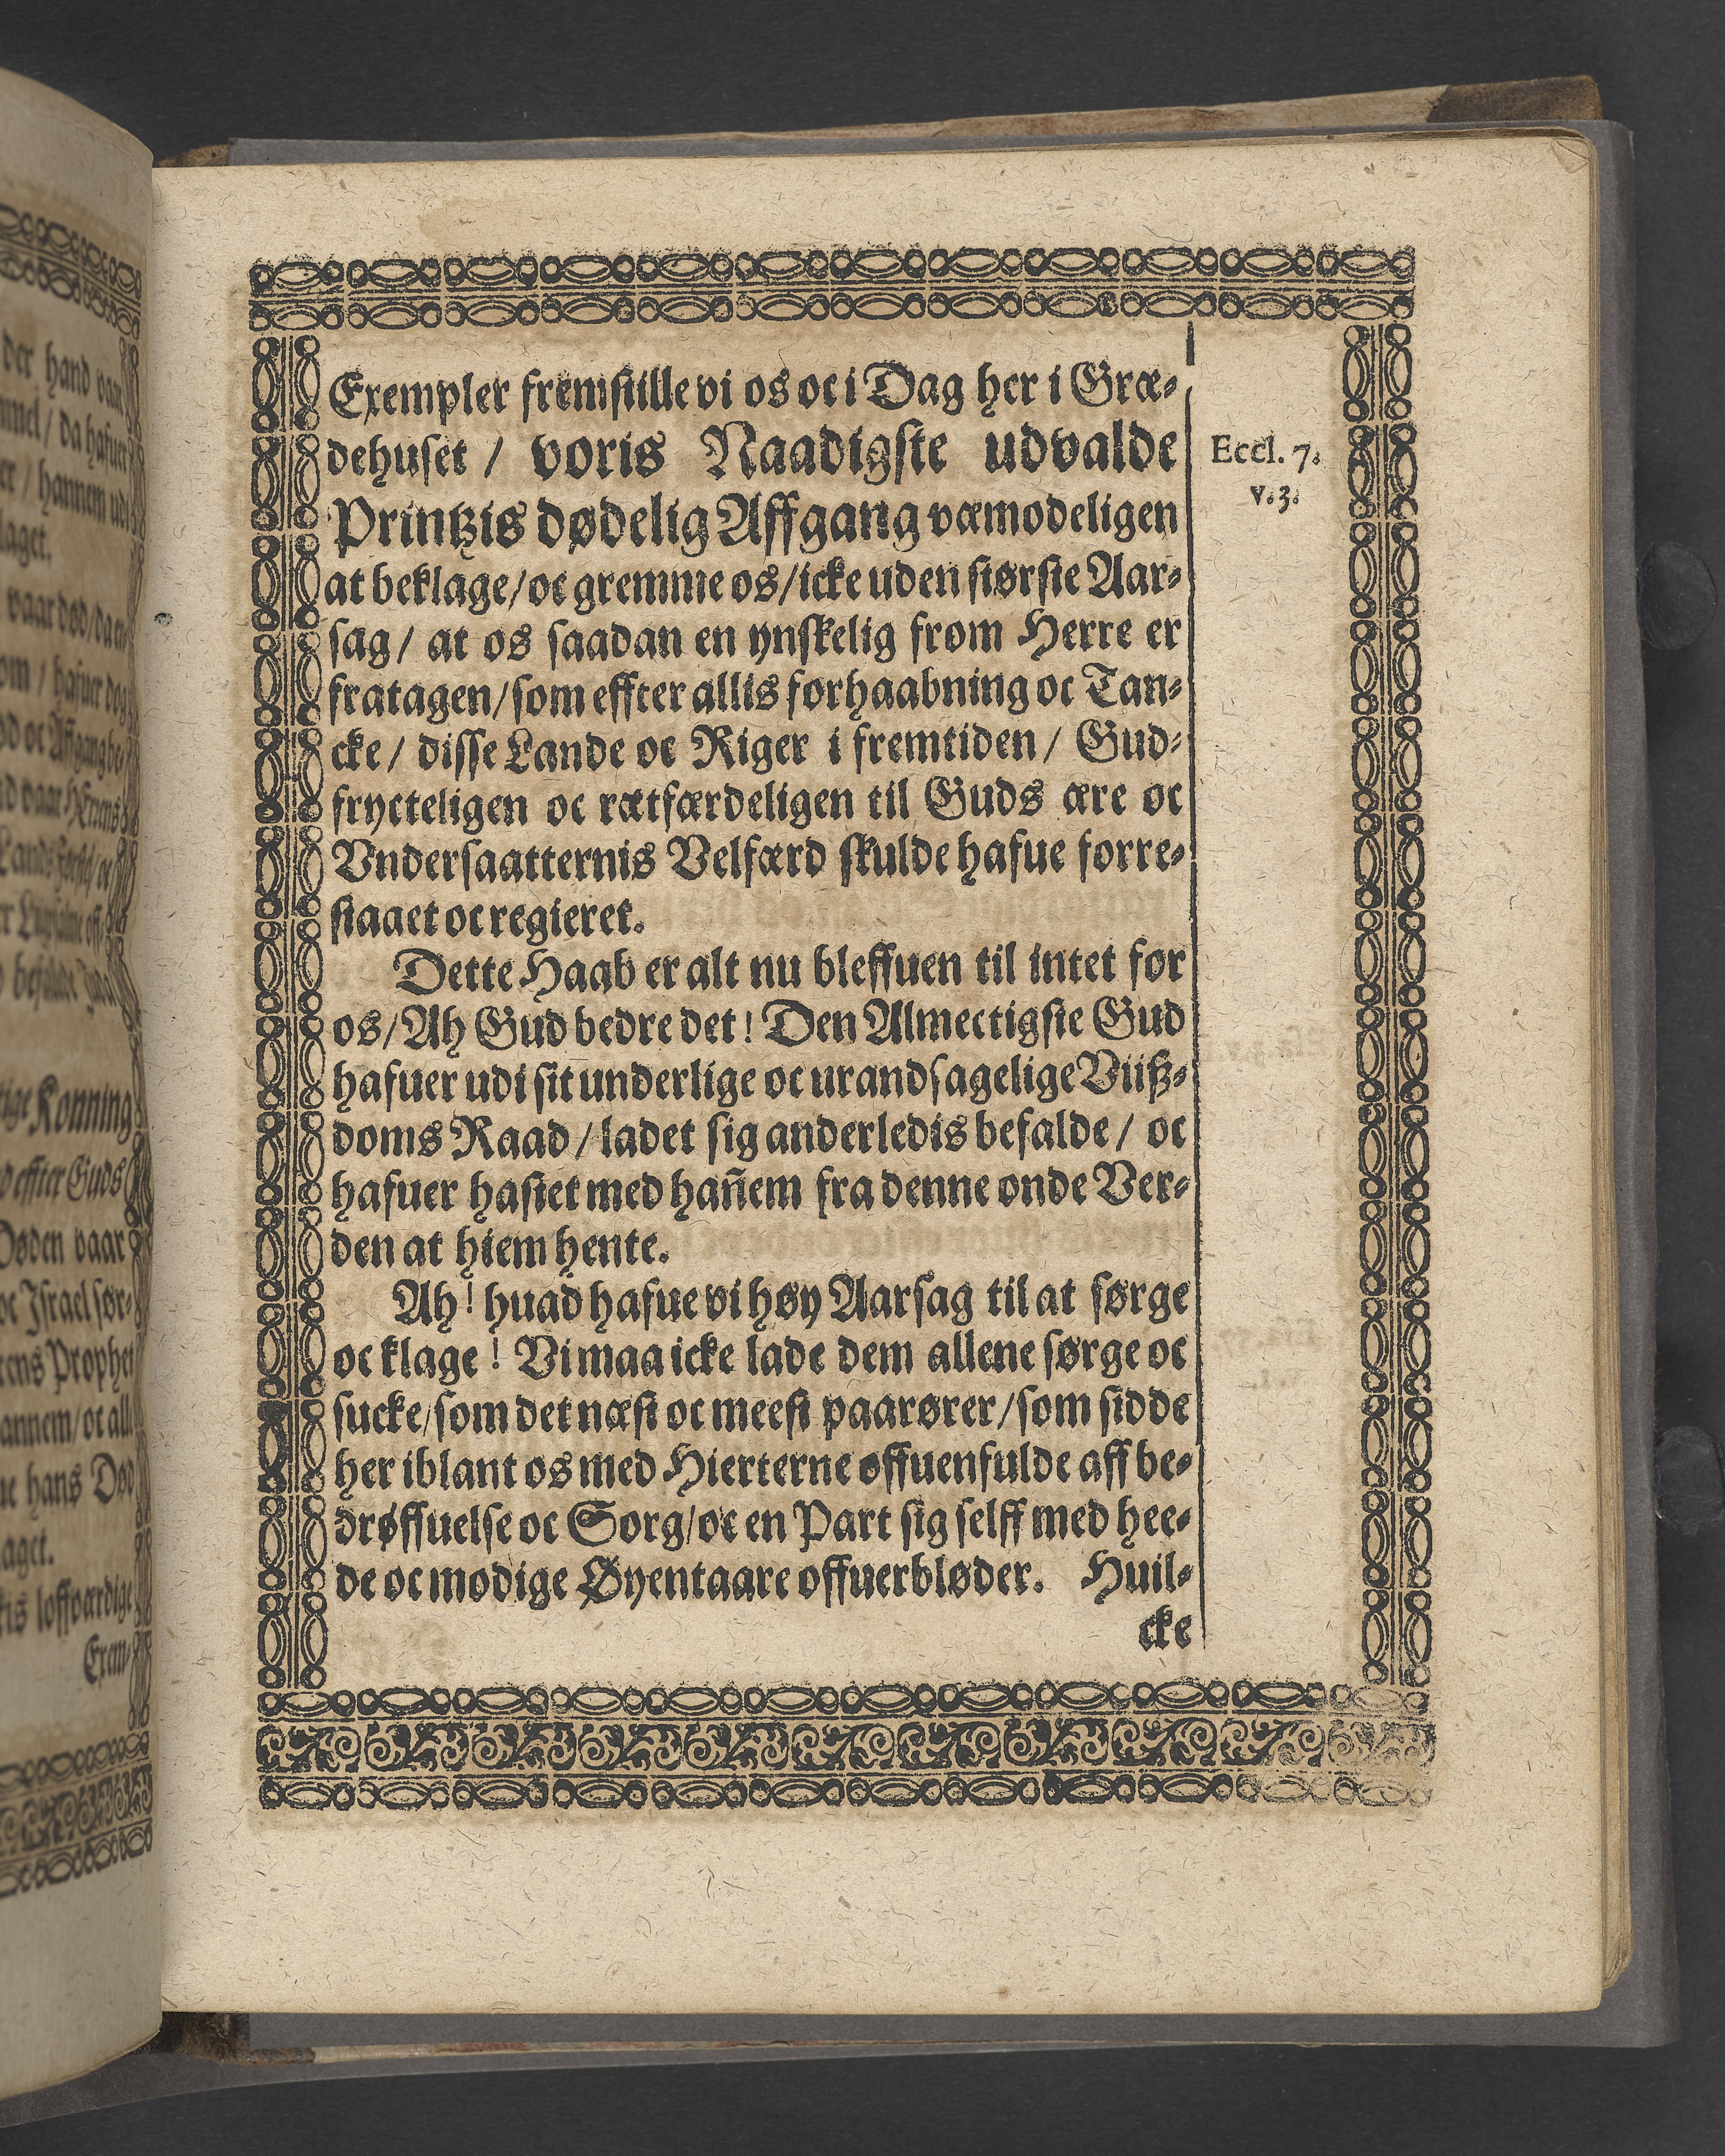 Exempler fremstille vi os oc i Dag her i Græ-
dehuset / voris Naadigste udvalde
Printzis dødelig Affgang væmodeligen
at beklage / oc gremme os / icke uden største Aar-
sag / at os saadan en ynskelig from Herre er
fratagen / som effter allis forhaabning oc Tan-
cke / disse Lande oc Riger i fremtiden / Gud-
frycteligen oc rætfærdeligen til Guds ære oc
Vndersaatternis Velfærd skulde hafue forre-
staaet oc regieret.
Dette Haab er alt nu bleffuen til intet for
os / Ah Gud bedre det! Den Almectigste Gud
hafuer udi sit underlige oc urandsagelige Viiß-
doms Raad / ladet sig anderledis befalde / oc
hafuer hastet med hañem fra denne onde Ver-
den at hiem hente.
Ah! huad hafue vi høy Aarsag til at sørge
oc klage! Vi maa icke lade dem allene sørge oc
sucke / som det næst oc meest paarører / som sidde
her iblant os med Hierterne offuenfulde aff be-
drøffuelse oc Sorg / oc en Part sig selff med hee-
de oc modige Øyentaare offuerbløder. Huil-
cke
Eccl. 7.
v. 3.
der hand vaar
/ da hafuer
/ hannem udi
laget.
vaar død / da en
/ hafuer dog
oc Affgang be-
vaar HErrens
Konning
effter Guds
Døden vaar
oc Israel sør-
Prophet
annem / oc all
hans Død
aget.
loffværdige
Exem-